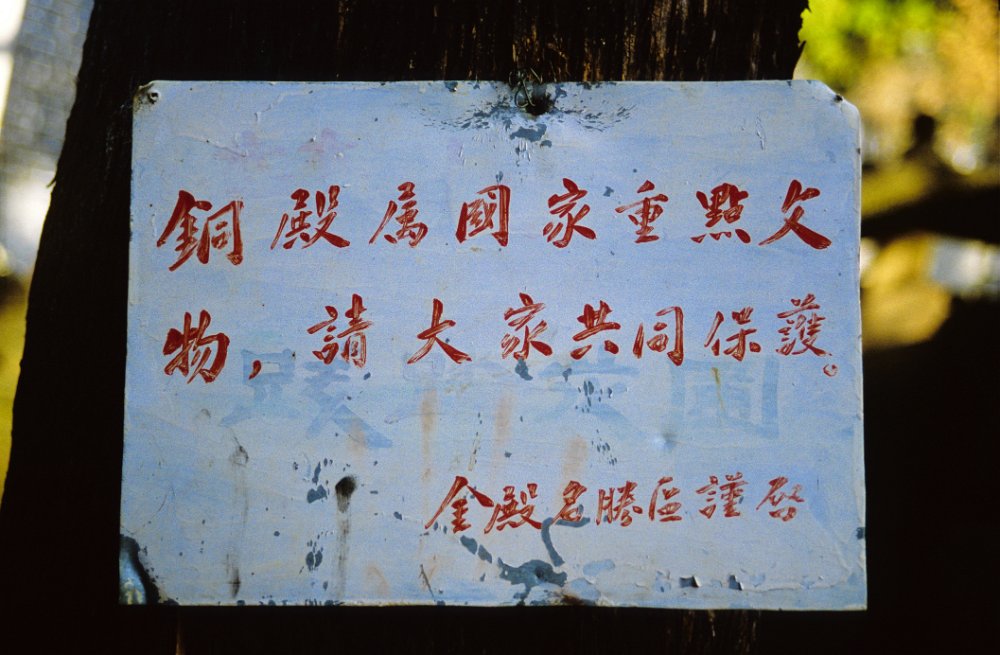 銅殿属國家重點文
物，請大家共同保護。
金殿名勝区謹啓